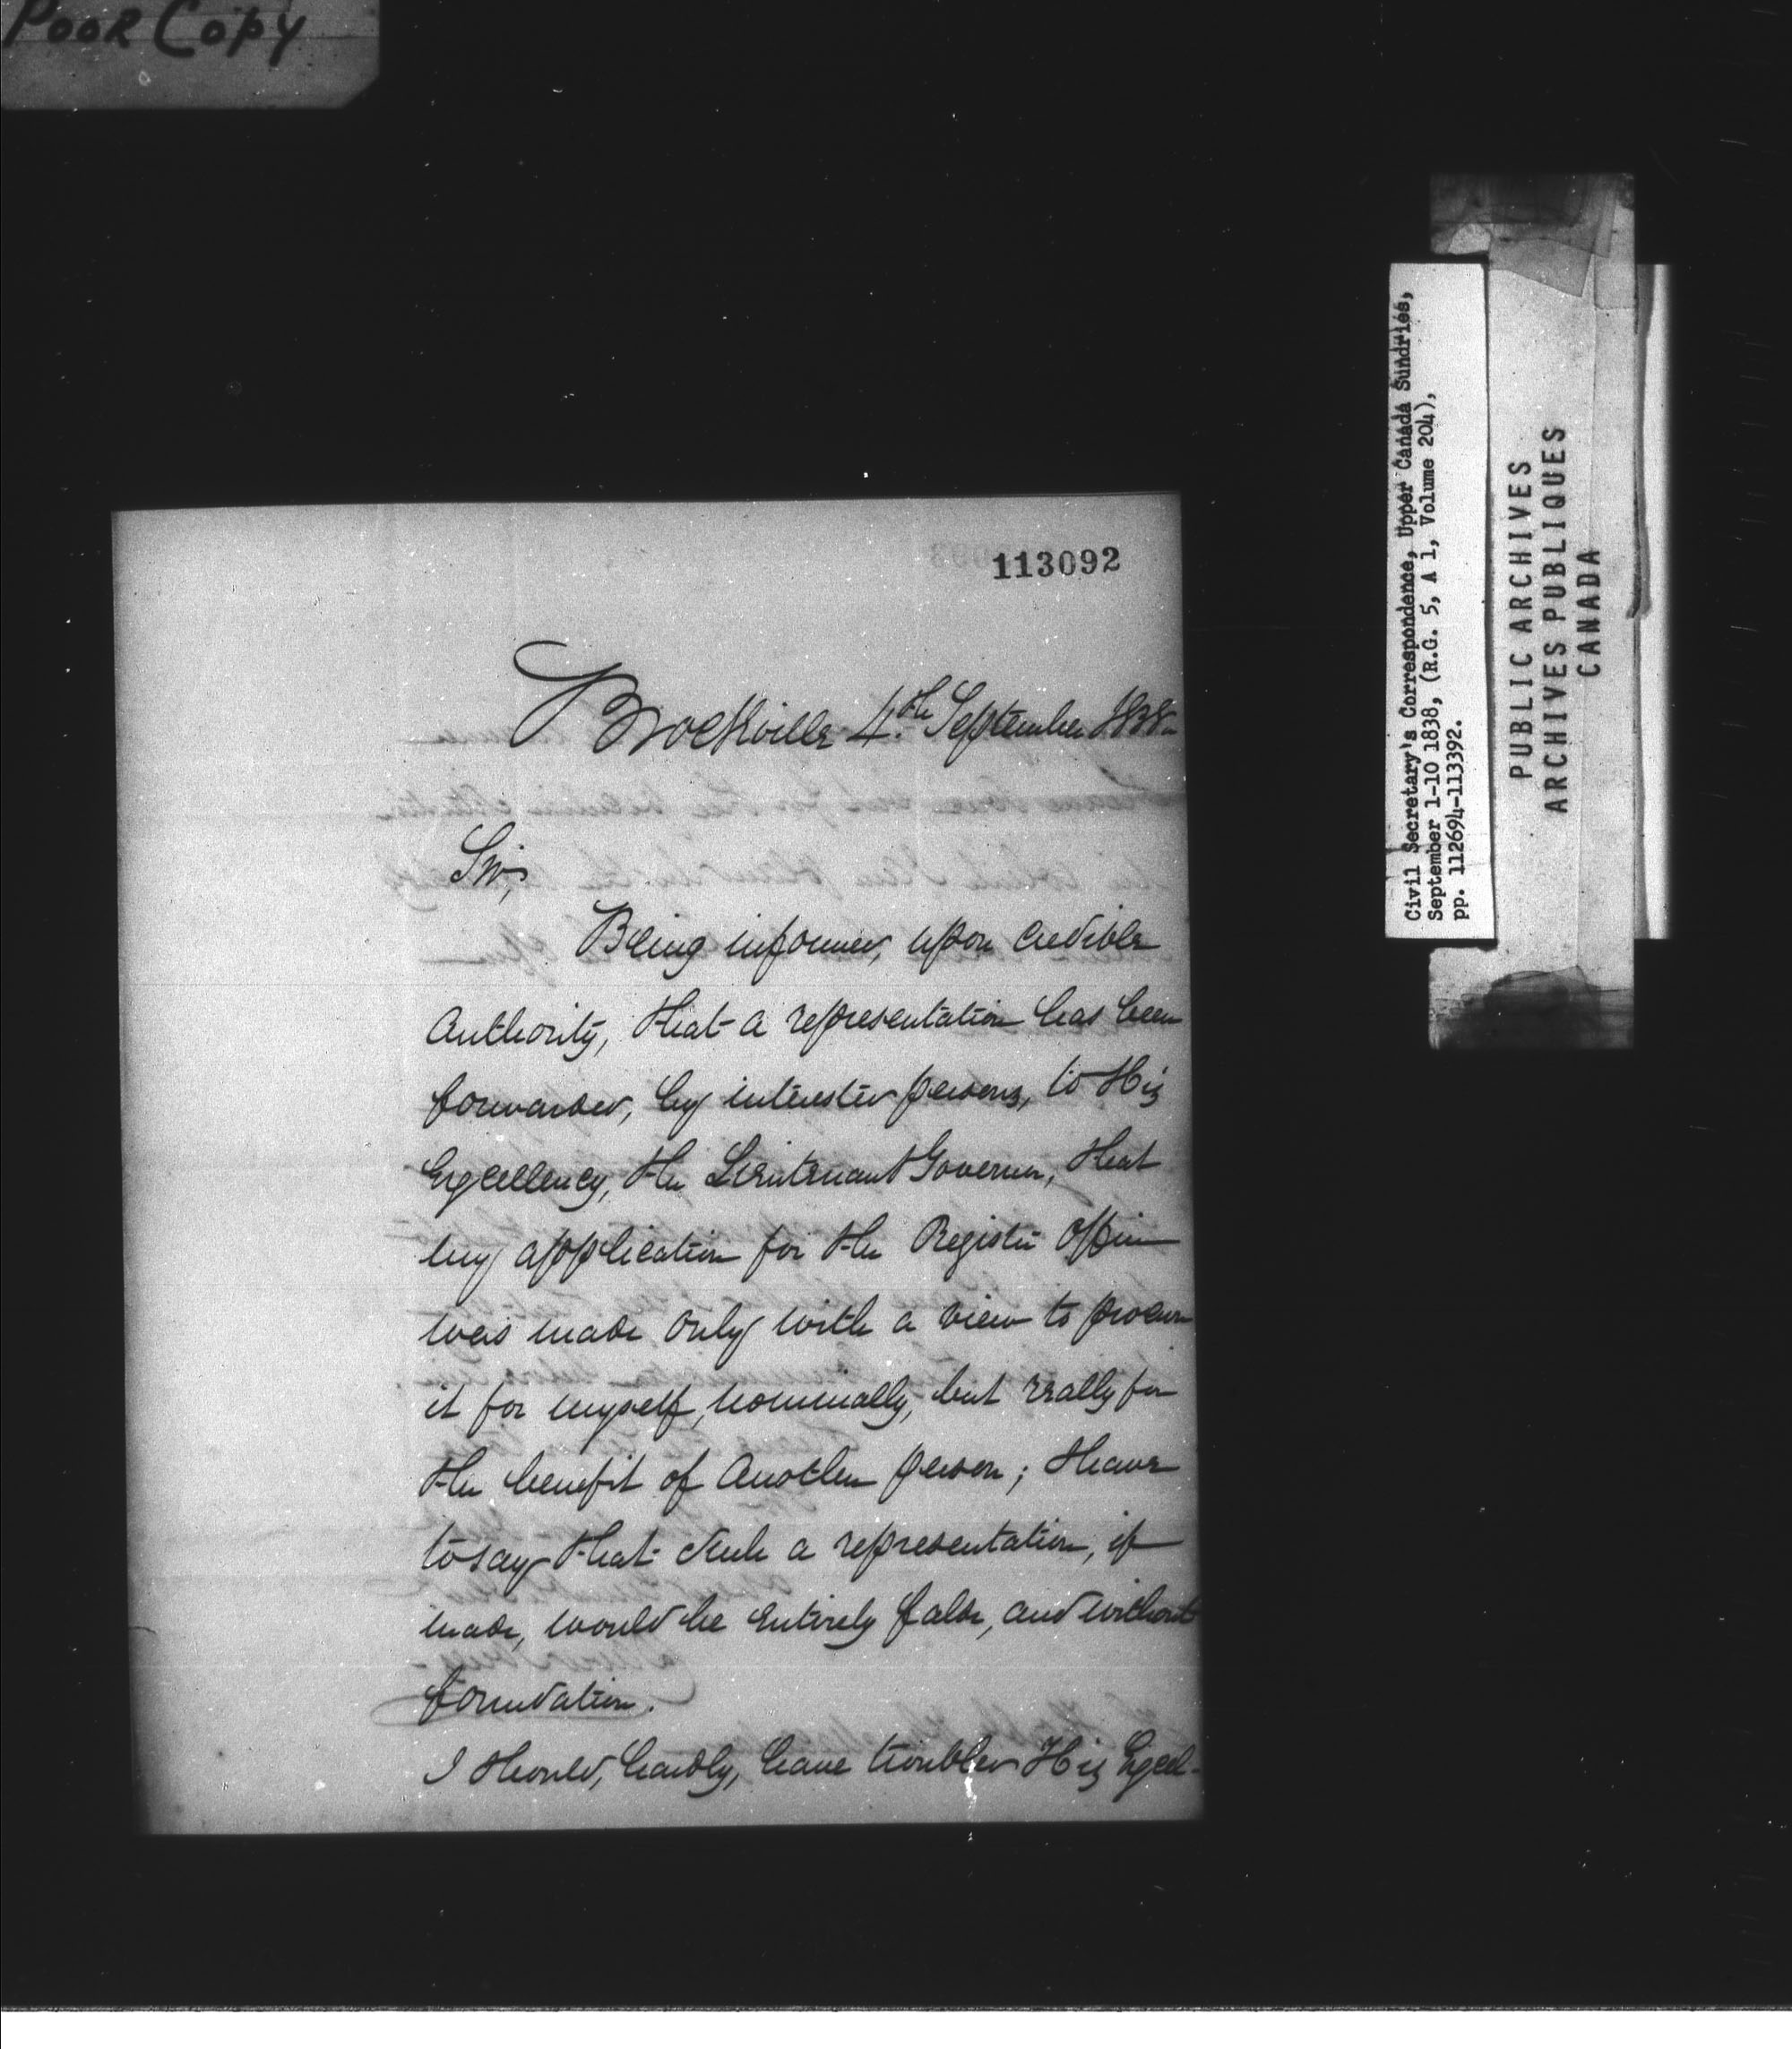 Poor Copy
113092
Brockville 4.th September 1838.
Sir,
Being informed, upon credible
Authority, that a representation has been
forwarded, by interested persons, to His
Excellency, the Lieutenant Governor, that
my application for the Register Office
was made only with a view to procure
it for myself, nominally, but really for
the benefit of another person; I have
to say that such a representation, if
made, would be entirely false, and without
foundation.
I should, hardly, have troubled His Excel-
Civil Secretary's Correspondence, Upper Canada Sundries,
September 1-10 1838, (R.G. 5, A 1, Volume 204),
pp. 112694-113392.
PUBLIC ARCHIVES
ARCHIVES PUBLIQUES
CANADA